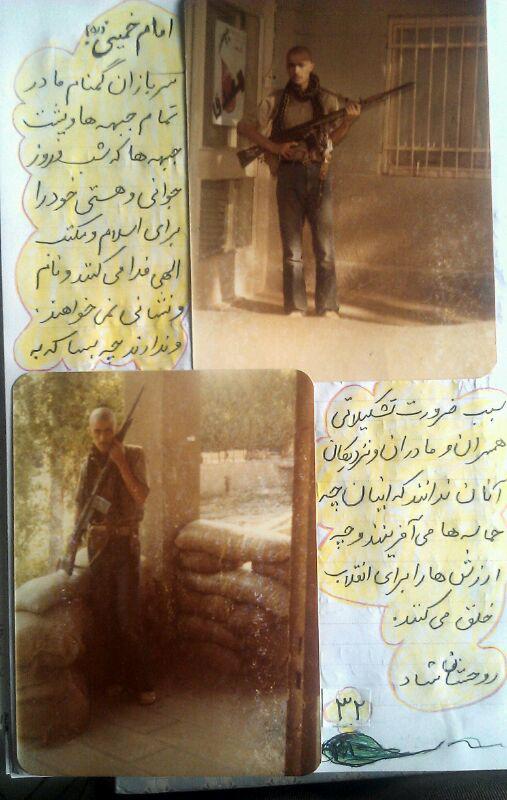 امام خمینی (ره):
سربازان گمنام ما در
تمام جبهه ها و پشت
جبهه ها که شب و روز
جوانی و هستی خود را
برای اسلام و مکتب
الهی فدا می کنند و نام
و نشانی نمی خواهند
و ندارند چه بسا که به
سبب ضرورت تشکیلاتی
همسران و مادران و نزدیکان
آنان ندانند که اینان چه
حماسه ها می آفرینند و چه
ارزش ها را برای انقلاب
خلق می کنند.
روحشان شاد
۳۲